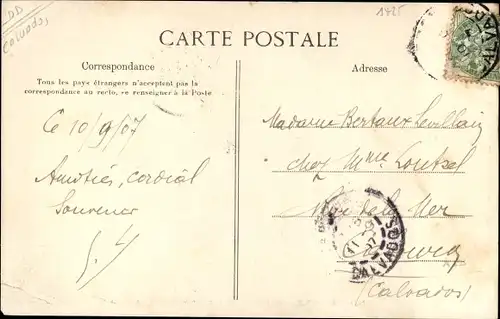 DD
Calvados
1425
CARTE POSTALE
Correspondance
Tous les pays étrangers n'acceptent pas la
correspondance au recto, se renseigner à la Poste
Ce 10/9/07
Amitiés, cordial
Souvenir
Adresse
Madame Bertaux Levillain
chez Mme
Rue de la Mer
(Calvados)
CALVADOS